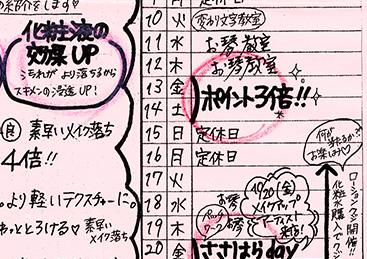 化粧液の
効果UP
汚れが より落ちるから
スキメンの浸透UP!
良 素早いメイク落ち
4倍!!
より軽いテクスチャーに。
とろける♡ 素早い
メイク落ち
10 火 変わり文字教室
11 水 お琴教室
12 木 お琴教室
13 金 ポイント3倍!!
14 土
15 日 定休日
16 月 定休日
17 火
18 水
19 木
20 金 ささはらday
10/20(金)
メイクアップ
アーティスト
来店!
お琴
何が
当たるか?
お楽しみ♡
ローション
開催!!
化粧水購入で